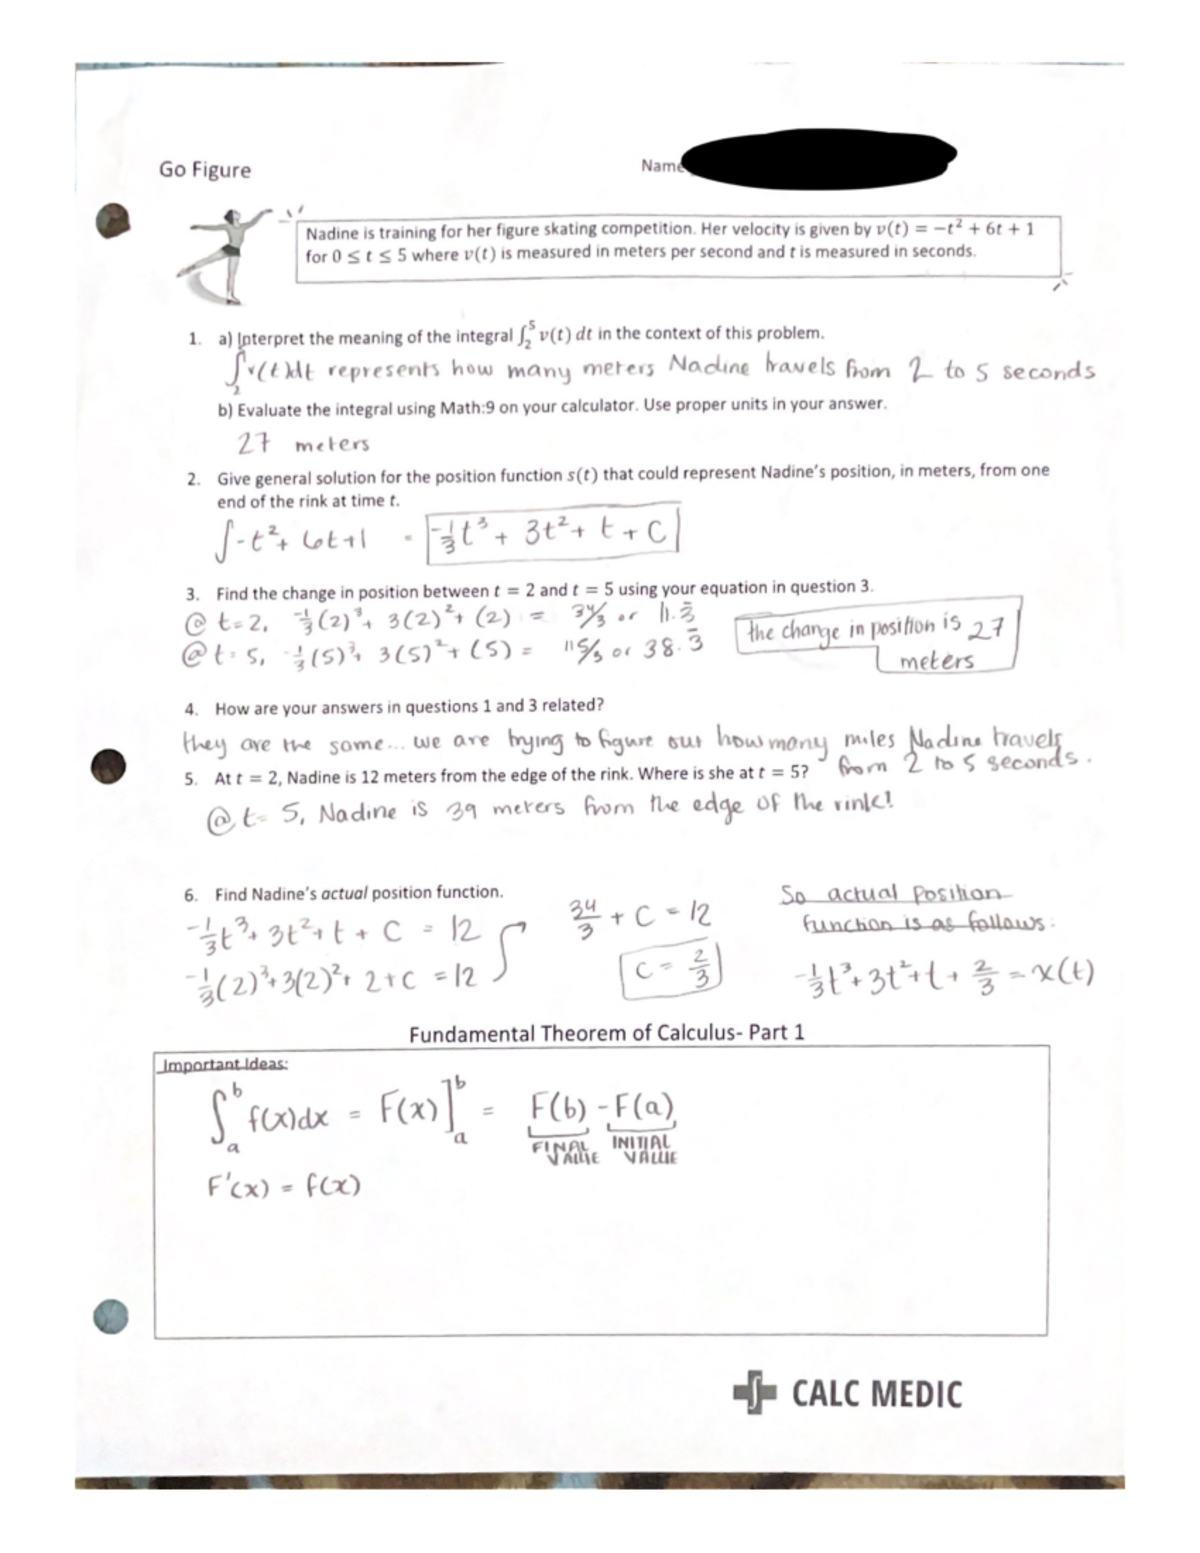 Go Figure
Name
Nadine is training for her figure skating competition. Her velocity is given by v(t) = −t² + 6t + 1
for 0 ≤ t ≤ 5 where v(t) is measured in meters per second and t is measured in seconds.
1. a) Interpret the meaning of the integral ∫₂⁵ v(t) dt in the context of this problem.
∫₂ v(t)dt represents how many meters Nadine travels from 2 to 5 seconds
b) Evaluate the integral using Math:9 on your calculator. Use proper units in your answer.
27 meters
2. Give general solution for the position function s(t) that could represent Nadine's position, in meters, from one
end of the rink at time t.
∫-t²+ 6t+1 = -1/3 t³ + 3t² + t + C
3. Find the change in position between t = 2 and t = 5 using your equation in question 3.
@ t=2, -1/3(2)³+ 3(2)²+ (2) = 34/3 or 11.3̄
@ t=5, -1/3(5)³+ 3(5)²+ (5) = 115/3 or 38.3̄
the change in position is 27
meters
4. How are your answers in questions 1 and 3 related?
they are the same... we are trying to figure out how many miles Nadine travels
from 2 to 5 seconds.
5. At t = 2, Nadine is 12 meters from the edge of the rink. Where is she at t = 5?
@ t= 5, Nadine is 39 meters from the edge of the rink!
6. Find Nadine's actual position function.
-1/3t³+ 3t²+ t + C = 12
-1/3(2)³+3(2)²+ 2+C = 12
34/3 + C = 12
C = 2/3
So actual position
function is as follows:
-1/3t³+3t²+t+ 2/3 = x(t)
Fundamental Theorem of Calculus- Part 1
Important Ideas:
∫ₐᵇ f(x)dx = F(x)]ₐᵇ = F(b) - F(a)
FINAL VALUE INITIAL VALUE
F'(x) = f(x)
CALC MEDIC